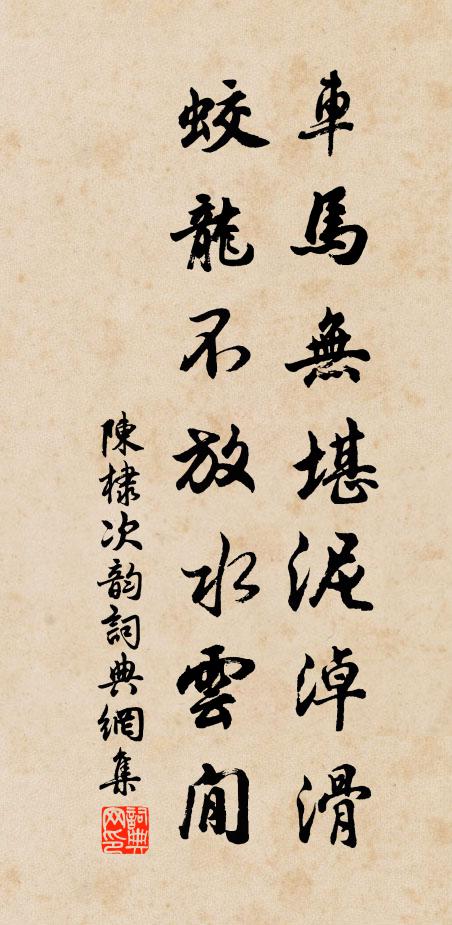 車馬無堪泥淖滑
蛟龍不放水雲閒
陳棣次韵詞典網集
詞典网印